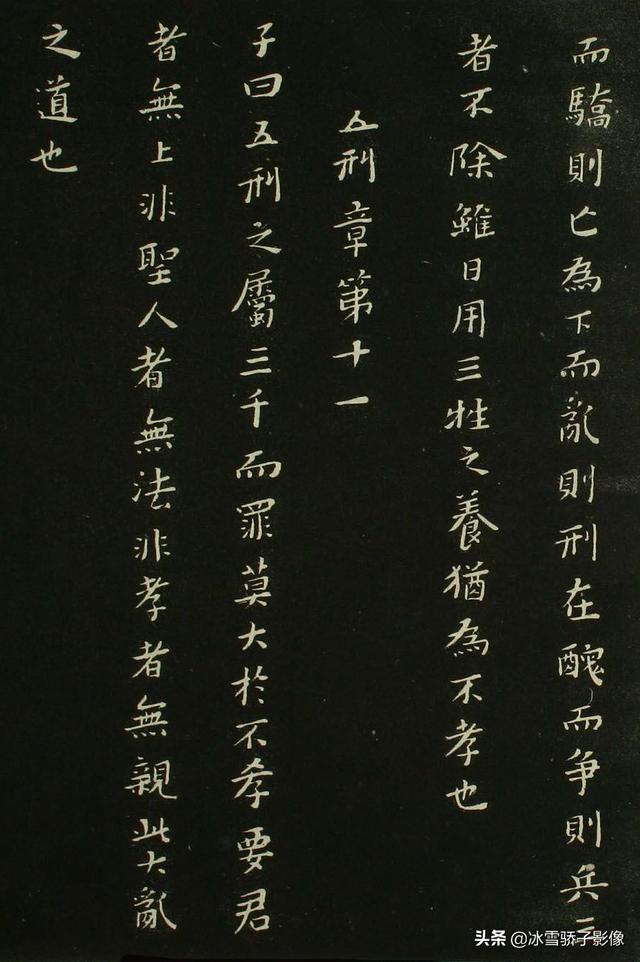 而驕則亡為下而亂則刑在醜而争則兵三
者不除雖日用三牲之養猶為不孝也
五刑章第十一
子曰五刑之屬三千而罪莫大於不孝要君
者無上非聖人者無法非孝者無親此大亂
之道也
头条 @冰雪骄子影像